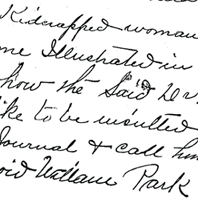 Kidnapped woman
me Illustrated in
how the Said Dr.
like to be insulted
Journal & call him
oid Wallace Park